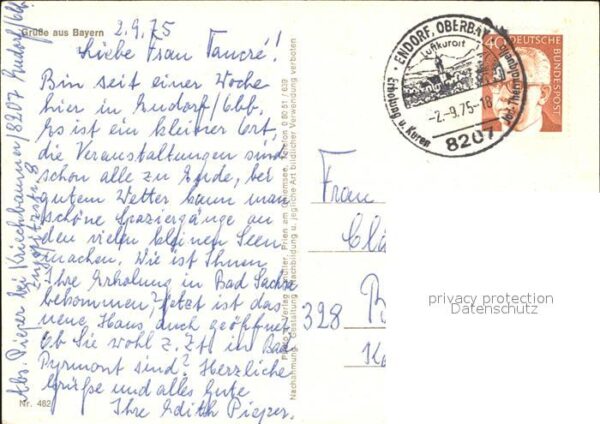 Grüße aus Bayern
2.9.75
Liebe Frau Tancré!
Bin seit einer Woche
hier in Endorf/Obb.
Es ist ein kleiner Ort,
die Veranstaltungen sind
schon alle zu Ende, bei
gutem Wetter kann man
schöne Spaziergänge an
den vielen kleinen Seen
machen. Wie ist Ihnen
Ihre Erholung in Bad Sachsa
bekommen? Jetzt ist das
neue Haus auch geöffnet
Ob Sie wohl z. Zt. in Bad
Pyrmont sind? Herzliche
Grüße und alles Gute
Ihre Edith Pieper.
Nr. 482
Abs. Pieper bei Kriechbaumer, 8207 Endorf/Obb.
Zugspitzstr. 8
Prien am Chiemsee, Telefon 0 80 51 / 639
Nachahmung, Gestaltung, Nachbildung u. jegliche Art bildlicher Verwendung verboten
ENDORF, OBERBAY
Luftkurort
-2.-9.75-18
Erholung u. Kuren
8207
40
DEUTSCHE
BUNDESPOST
Frau
328
privacy protection
Datenschutz